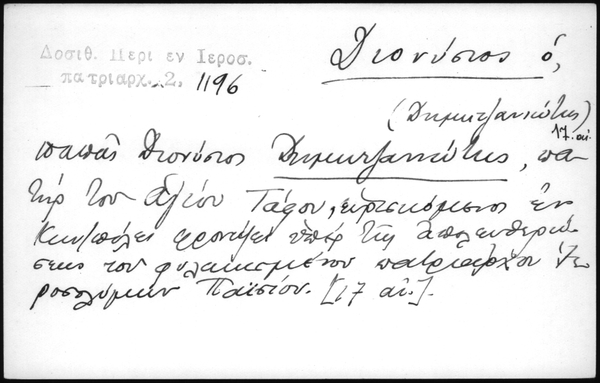 Δοσιθ. Περι εν Ιεροσ.
πατριαρχ. 2. 1196
Διονύσιος ὁ,
(Δημητζανιώτης)
17. αἰ.
παπᾶς Διονύσιος Δημητζανιώτης, πα-
τὴρ τοῦ ἁγίου Τάφου, εὑρισκόμενος ἐν
Κων/πόλει φροντίζει ὑπὲρ τῆς ἀπελευθερώ-
σεως τοῦ φυλακισμένου πατριάρχου Ἱε-
ροσολύμων Παϊσίου. [17 αἰ.].